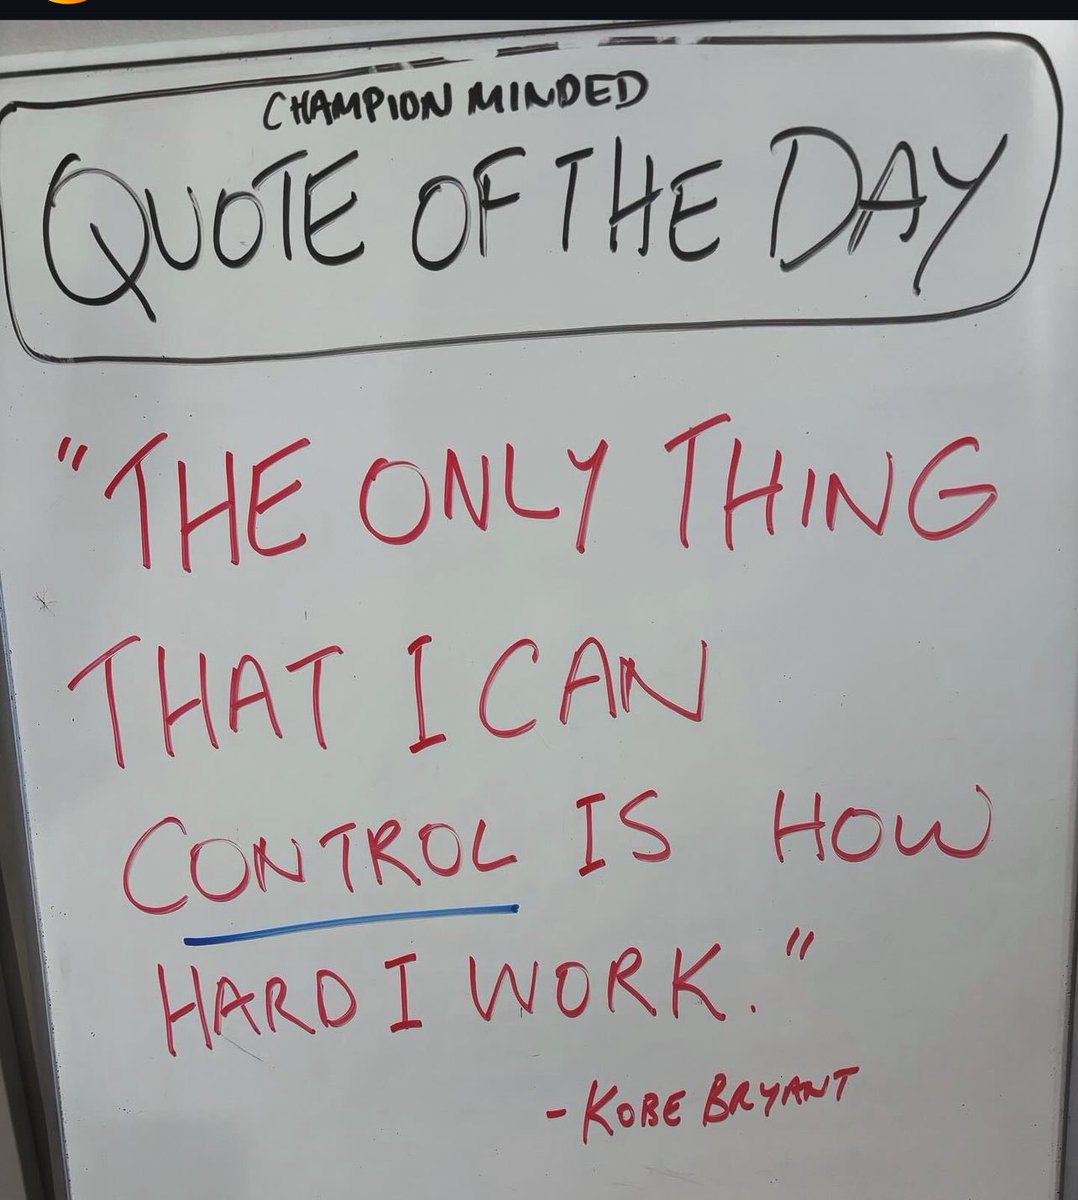 CHAMPION MINDED
QUOTE OF THE DAY
"THE ONLY THING
THAT I CAN
CONTROL IS HOW
HARD I WORK."
- KOBE BRYANT